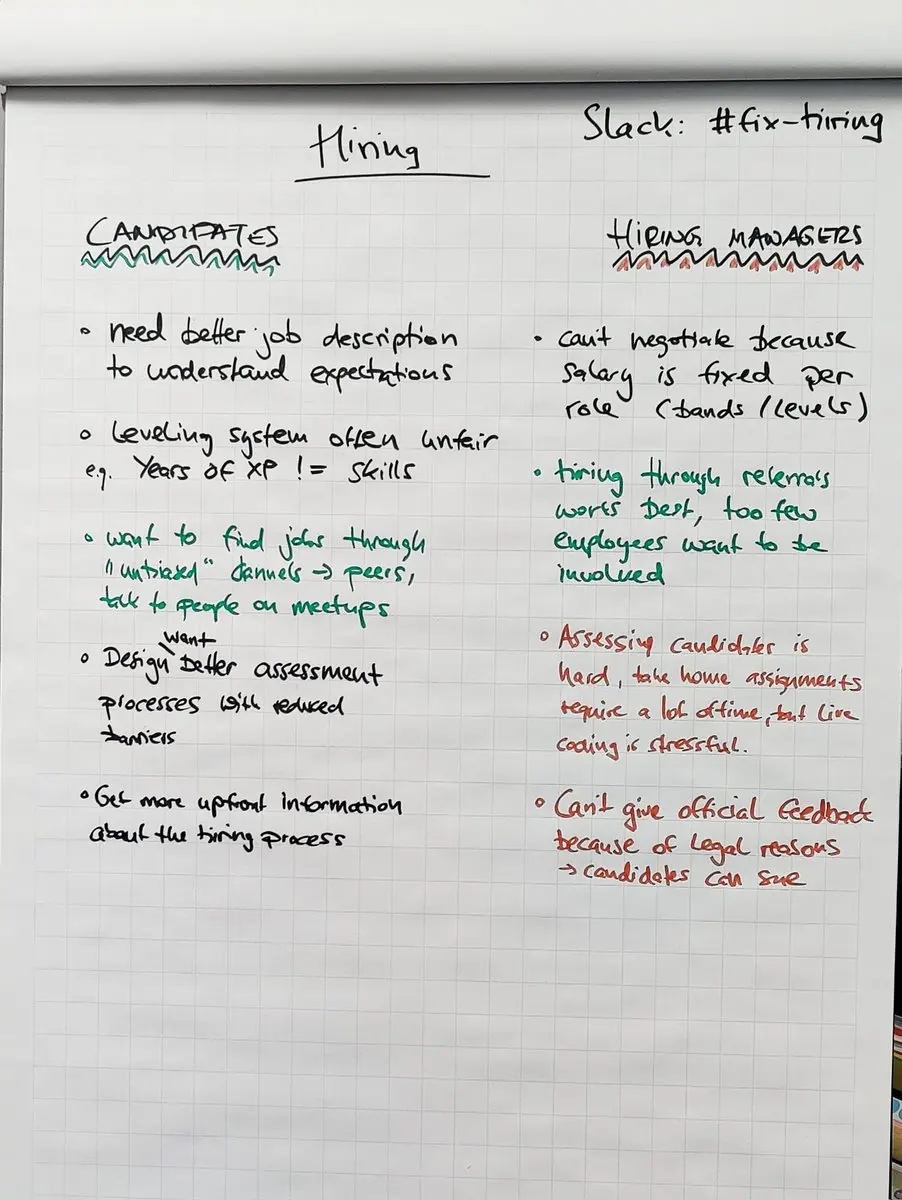 Hiring
Slack: #fix-hiring
CANDIDATES
• need better job description
to understand expectations
• Leveling system often unfair
e.g. Years of XP != Skills
• want to find jobs through
"unbiased" channels → peers,
talk to people on meetups
want
• Design better assessment
processes with reduced
barriers
• Get more upfront information
about the hiring process
HIRING MANAGERS
• can't negotiate because
salary is fixed per
role (bands / levels)
• hiring through referrals
works best, too few
employees want to be
involved
• Assessing candidates is
hard, take home assignments
require a lot of time, but live
coding is stressful.
• Can't give official feedback
because of legal reasons
→ candidates can sue